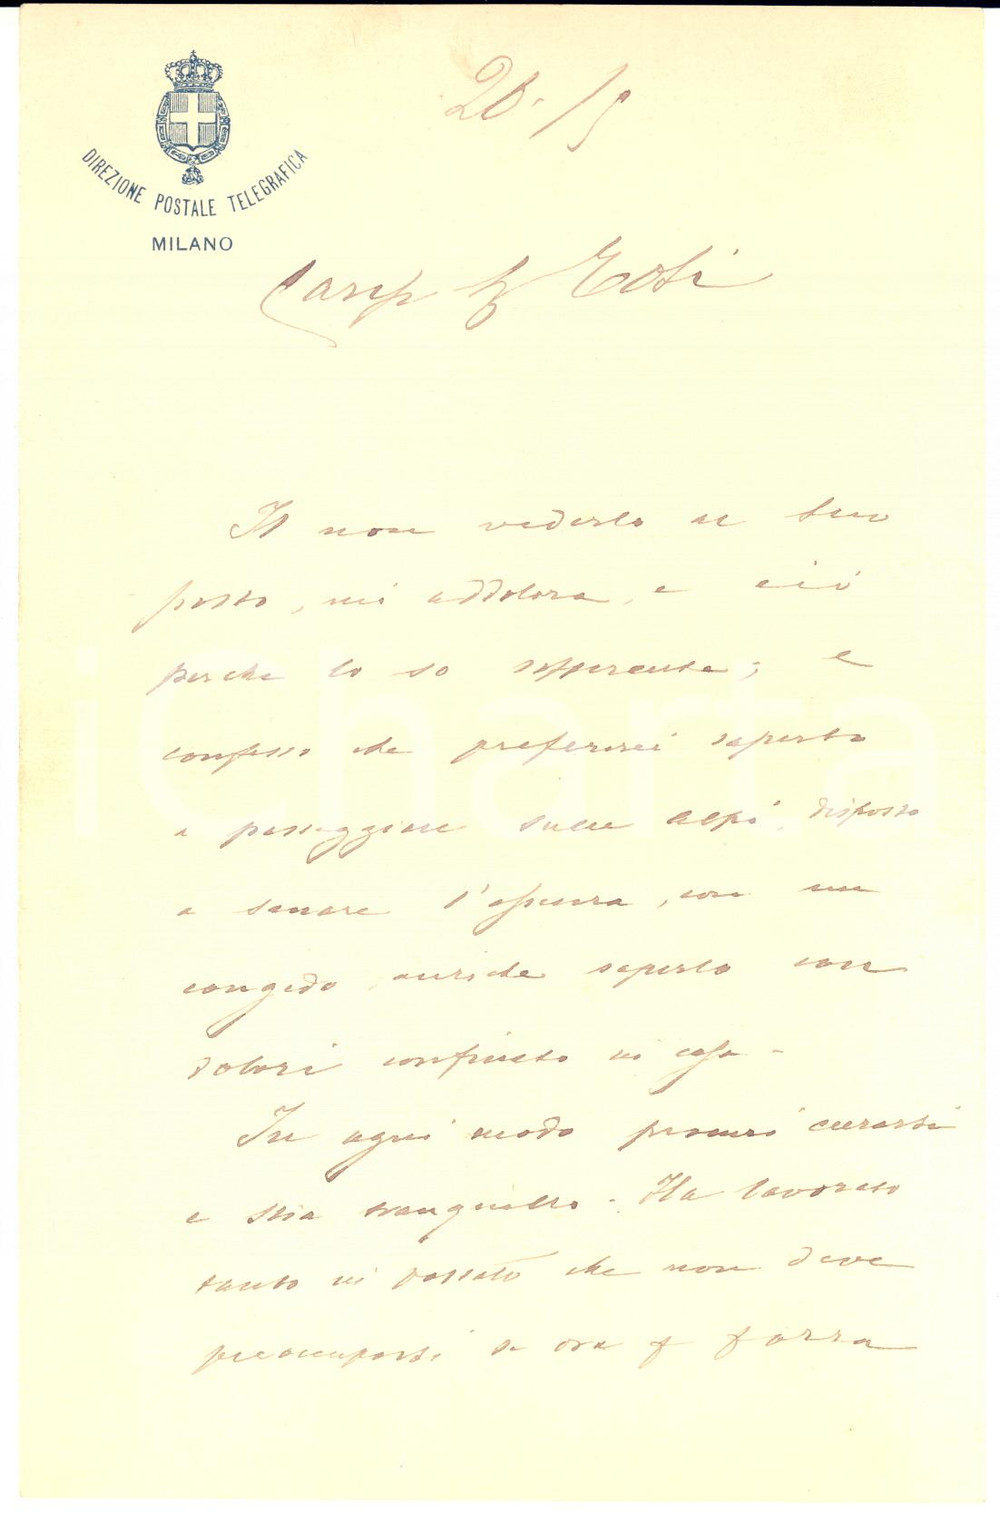 DIREZIONE POSTALE TELEGRAFICA
MILANO
Il non vederla al suo
posto, mi addolora, e ciò
perchè lo so sofferente; e
confesso che preferirei saperlo
a passeggiare sulle Alpi, disposto
a con un
congedo, anzichè saperlo con
dolori confinato in casa -
In ogni modo procuri curarsi
e stia tranquillo. Ha lavorato
tanto in passato che non deve
preoccuparsi se ora forza
iCharta